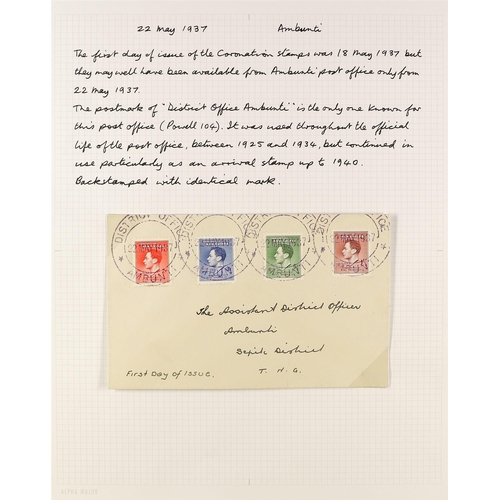 22 May 1937 Ambunti
The first day of issue of the Coronation stamps was 18 May 1937 but
they may well have been available from Ambunti post office only from
22 May 1937.
The postmark of "District Office Ambunti" is the only one known for
this post office (Powell 104). It was used throughout the official
life of the post office, between 1925 and 1934, but continued in
use particularly as an arrival stamp up to 1940.
Backstamped with identical mark.
DISTRICT OFFICE
22 MAY 1937
AMBUNTI
The Assistant District Officer
Ambunti
Sepik District
T. N. G.
First Day of Issue.